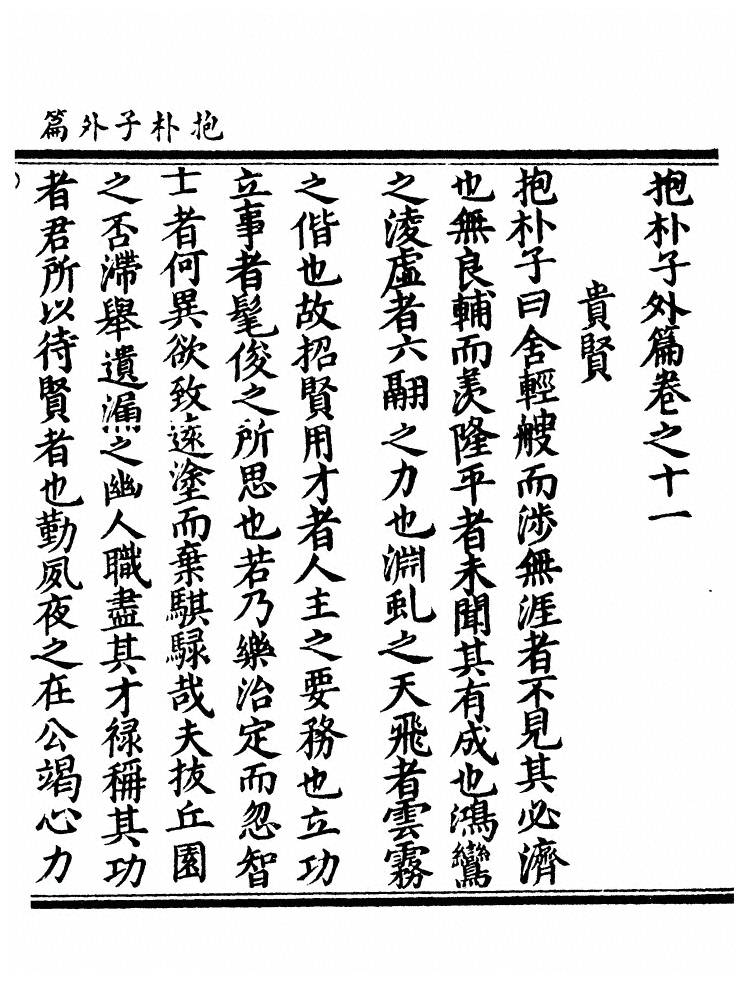 抱朴子外篇
抱朴子外篇卷之十一
貴賢
抱朴子曰舍輕艘而涉無涯者不見其必濟
也無良輔而羨隆平者未聞其有成也鴻鸞
之淩虛者六翮之力也淵虬之天飛者雲霧
之偕也故招賢用才者人主之要務也立功
立事者髦俊之所思也若乃樂治定而忽智
士者何異欲致遠塗而棄騏騄哉夫抜丘園
之否滯舉遺漏之幽人職盡其才禄稱其功
者君所以待賢者也勤夙夜之在公竭心力